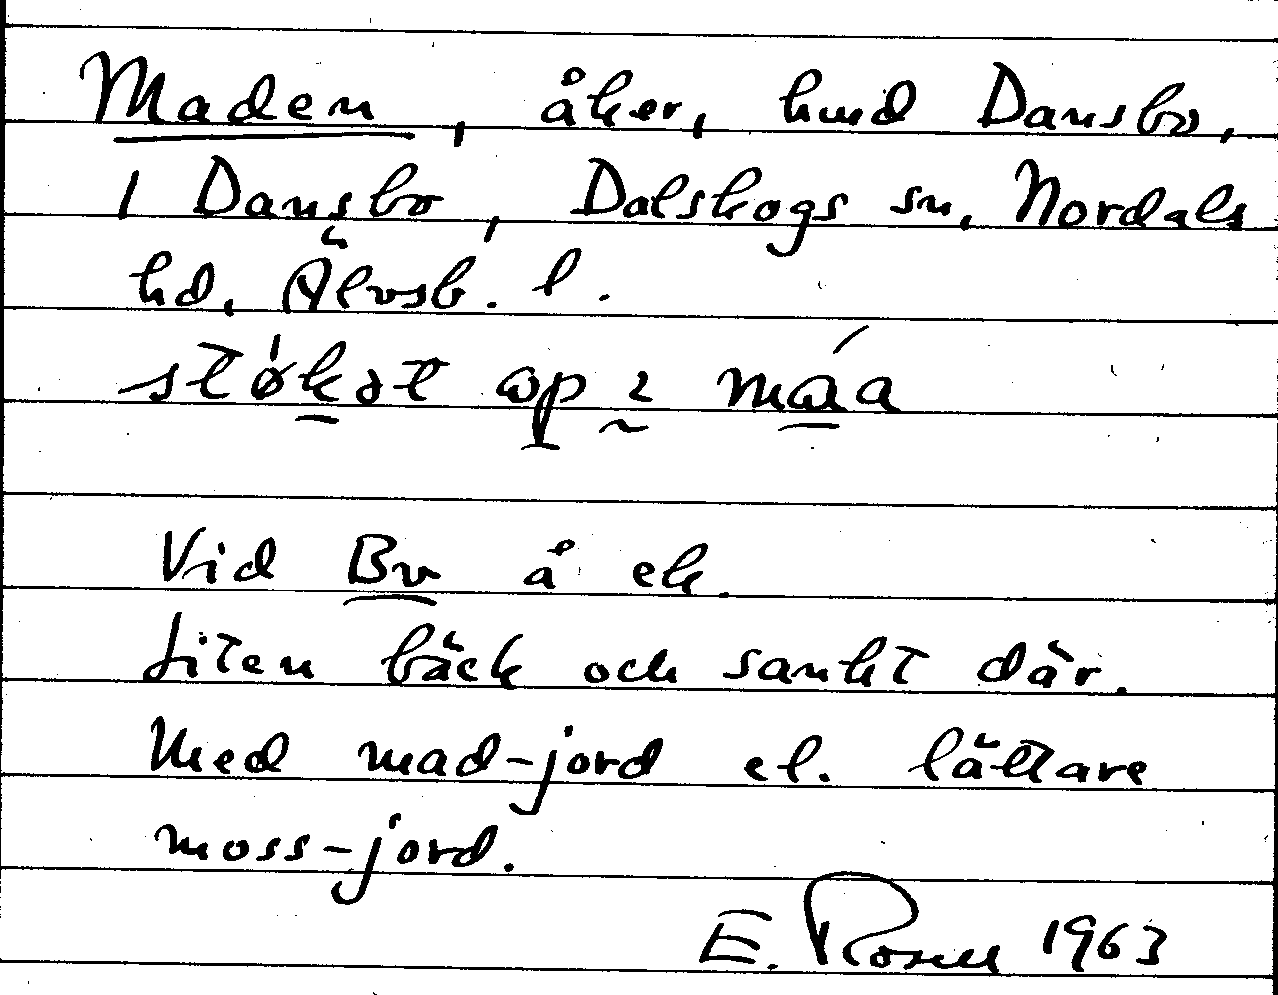 Maden, åker, hmd Dansbo,
1 Dansbo, Dalskogs sn, Nordals
hd, Älvsb. l.
støkət
Vid Bv å ek.
Liten bäck och sankt där.
Med mad-jord el. lättare
moss-jord.
E. Rosell 1963